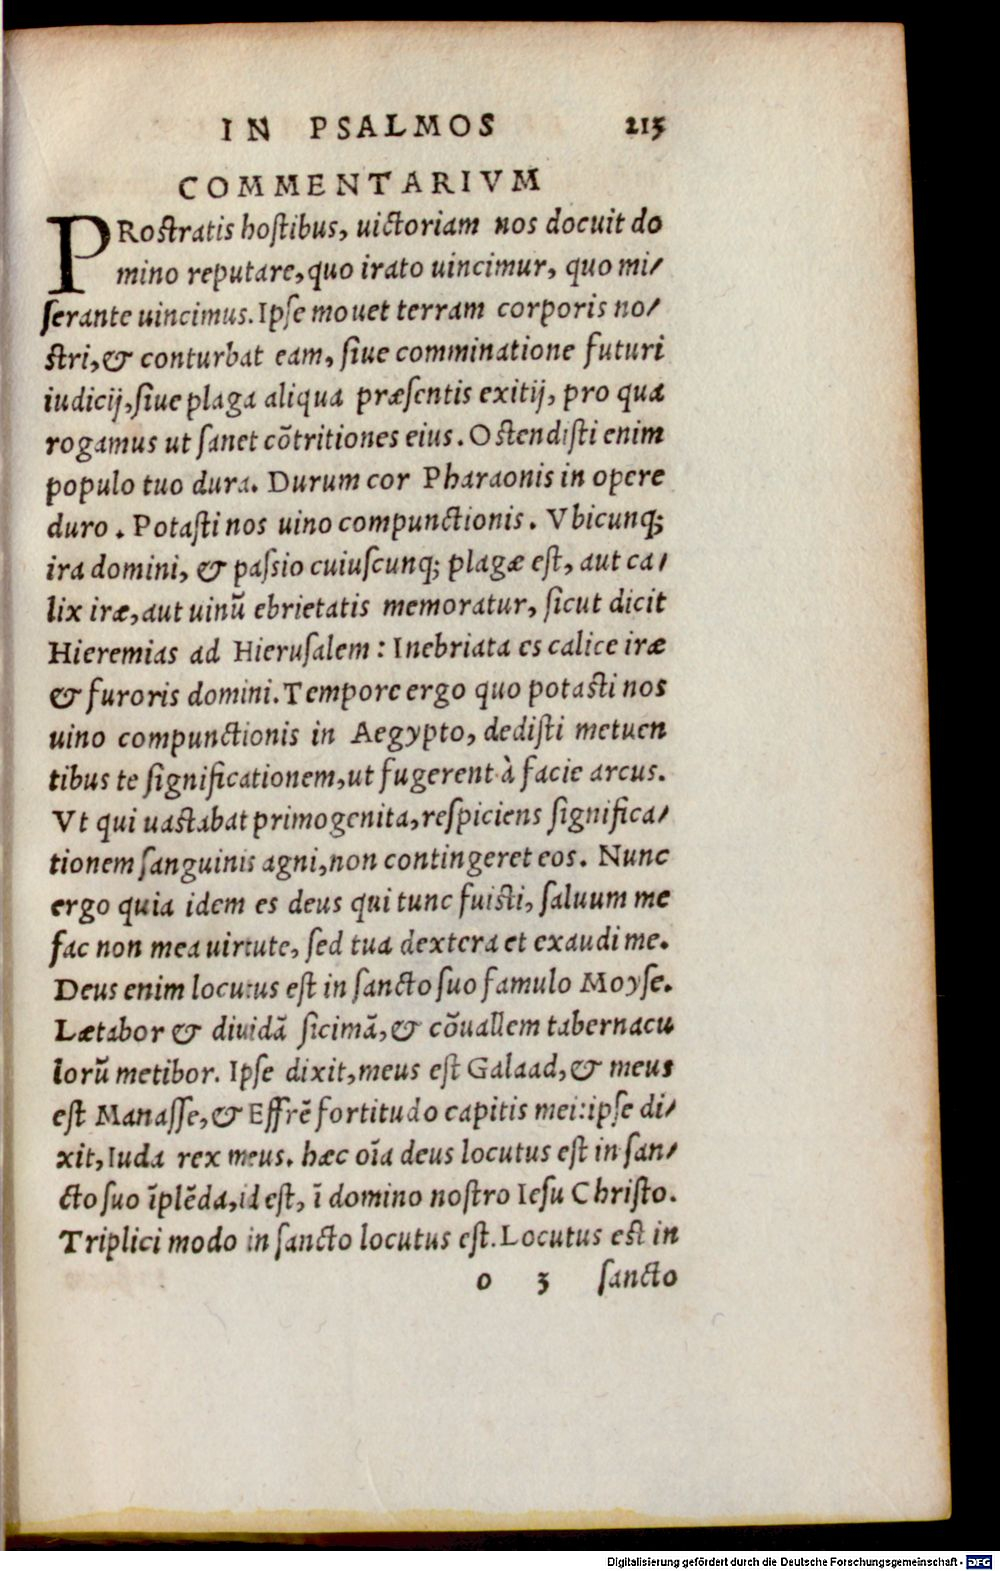 IN PSALMOS 215
COMMENTARIVM
PRostratis hostibus, uictoriam nos docuit do
mino reputare, quo irato uincimur, quo mi/
serante uincimus. Ipse mouet terram corporis no/
stri, & conturbat eam, siue comminatione futuri
iudicij, siue plaga aliqua præsentis exitij, pro qua
rogamus ut sanet cõtritiones eius. Ostendisti enim
populo tuo dura. Durum cor Pharaonis in opere
duro. Potasti nos uino compunctionis. Vbicunq;
ira domini, & passio cuiuscunq; plagæ est, aut ca/
lix iræ, aut uinũ ebrietatis memoratur, sicut dicit
Hieremias ad Hierusalem: Inebriata es calice iræ
& furoris domini. Tempore ergo quo potasti nos
uino compunctionis in Aegypto, dedisti metuen
tibus te significationem, ut fugerent à facie arcus.
Vt qui uastabat primogenita, respiciens significa/
tionem sanguinis agni, non contingeret eos. Nunc
ergo quia idem es deus qui tunc fuisti, saluum me
fac non mea uirtute, sed tua dextera et exaudi me.
Deus enim locutus est in sancto suo famulo Moyse.
Lætabor & diuidã sicimã, & cõuallem tabernacu
lorũ metibor. Ipse dixit, meus est Galaad, & meus
est Manasse, & Effrẽ fortitudo capitis mei: ipse di/
xit, Iuda rex meus. hæc oĩa deus locutus est in san/
cto suo ĩplẽda, id est, ĩ domino nostro Iesu Christo.
Triplici modo in sancto locutus est. Locutus est in
o 3 sancto
Digitalisierung gefördert durch die Deutsche Forschungsgemeinschaft - DFG